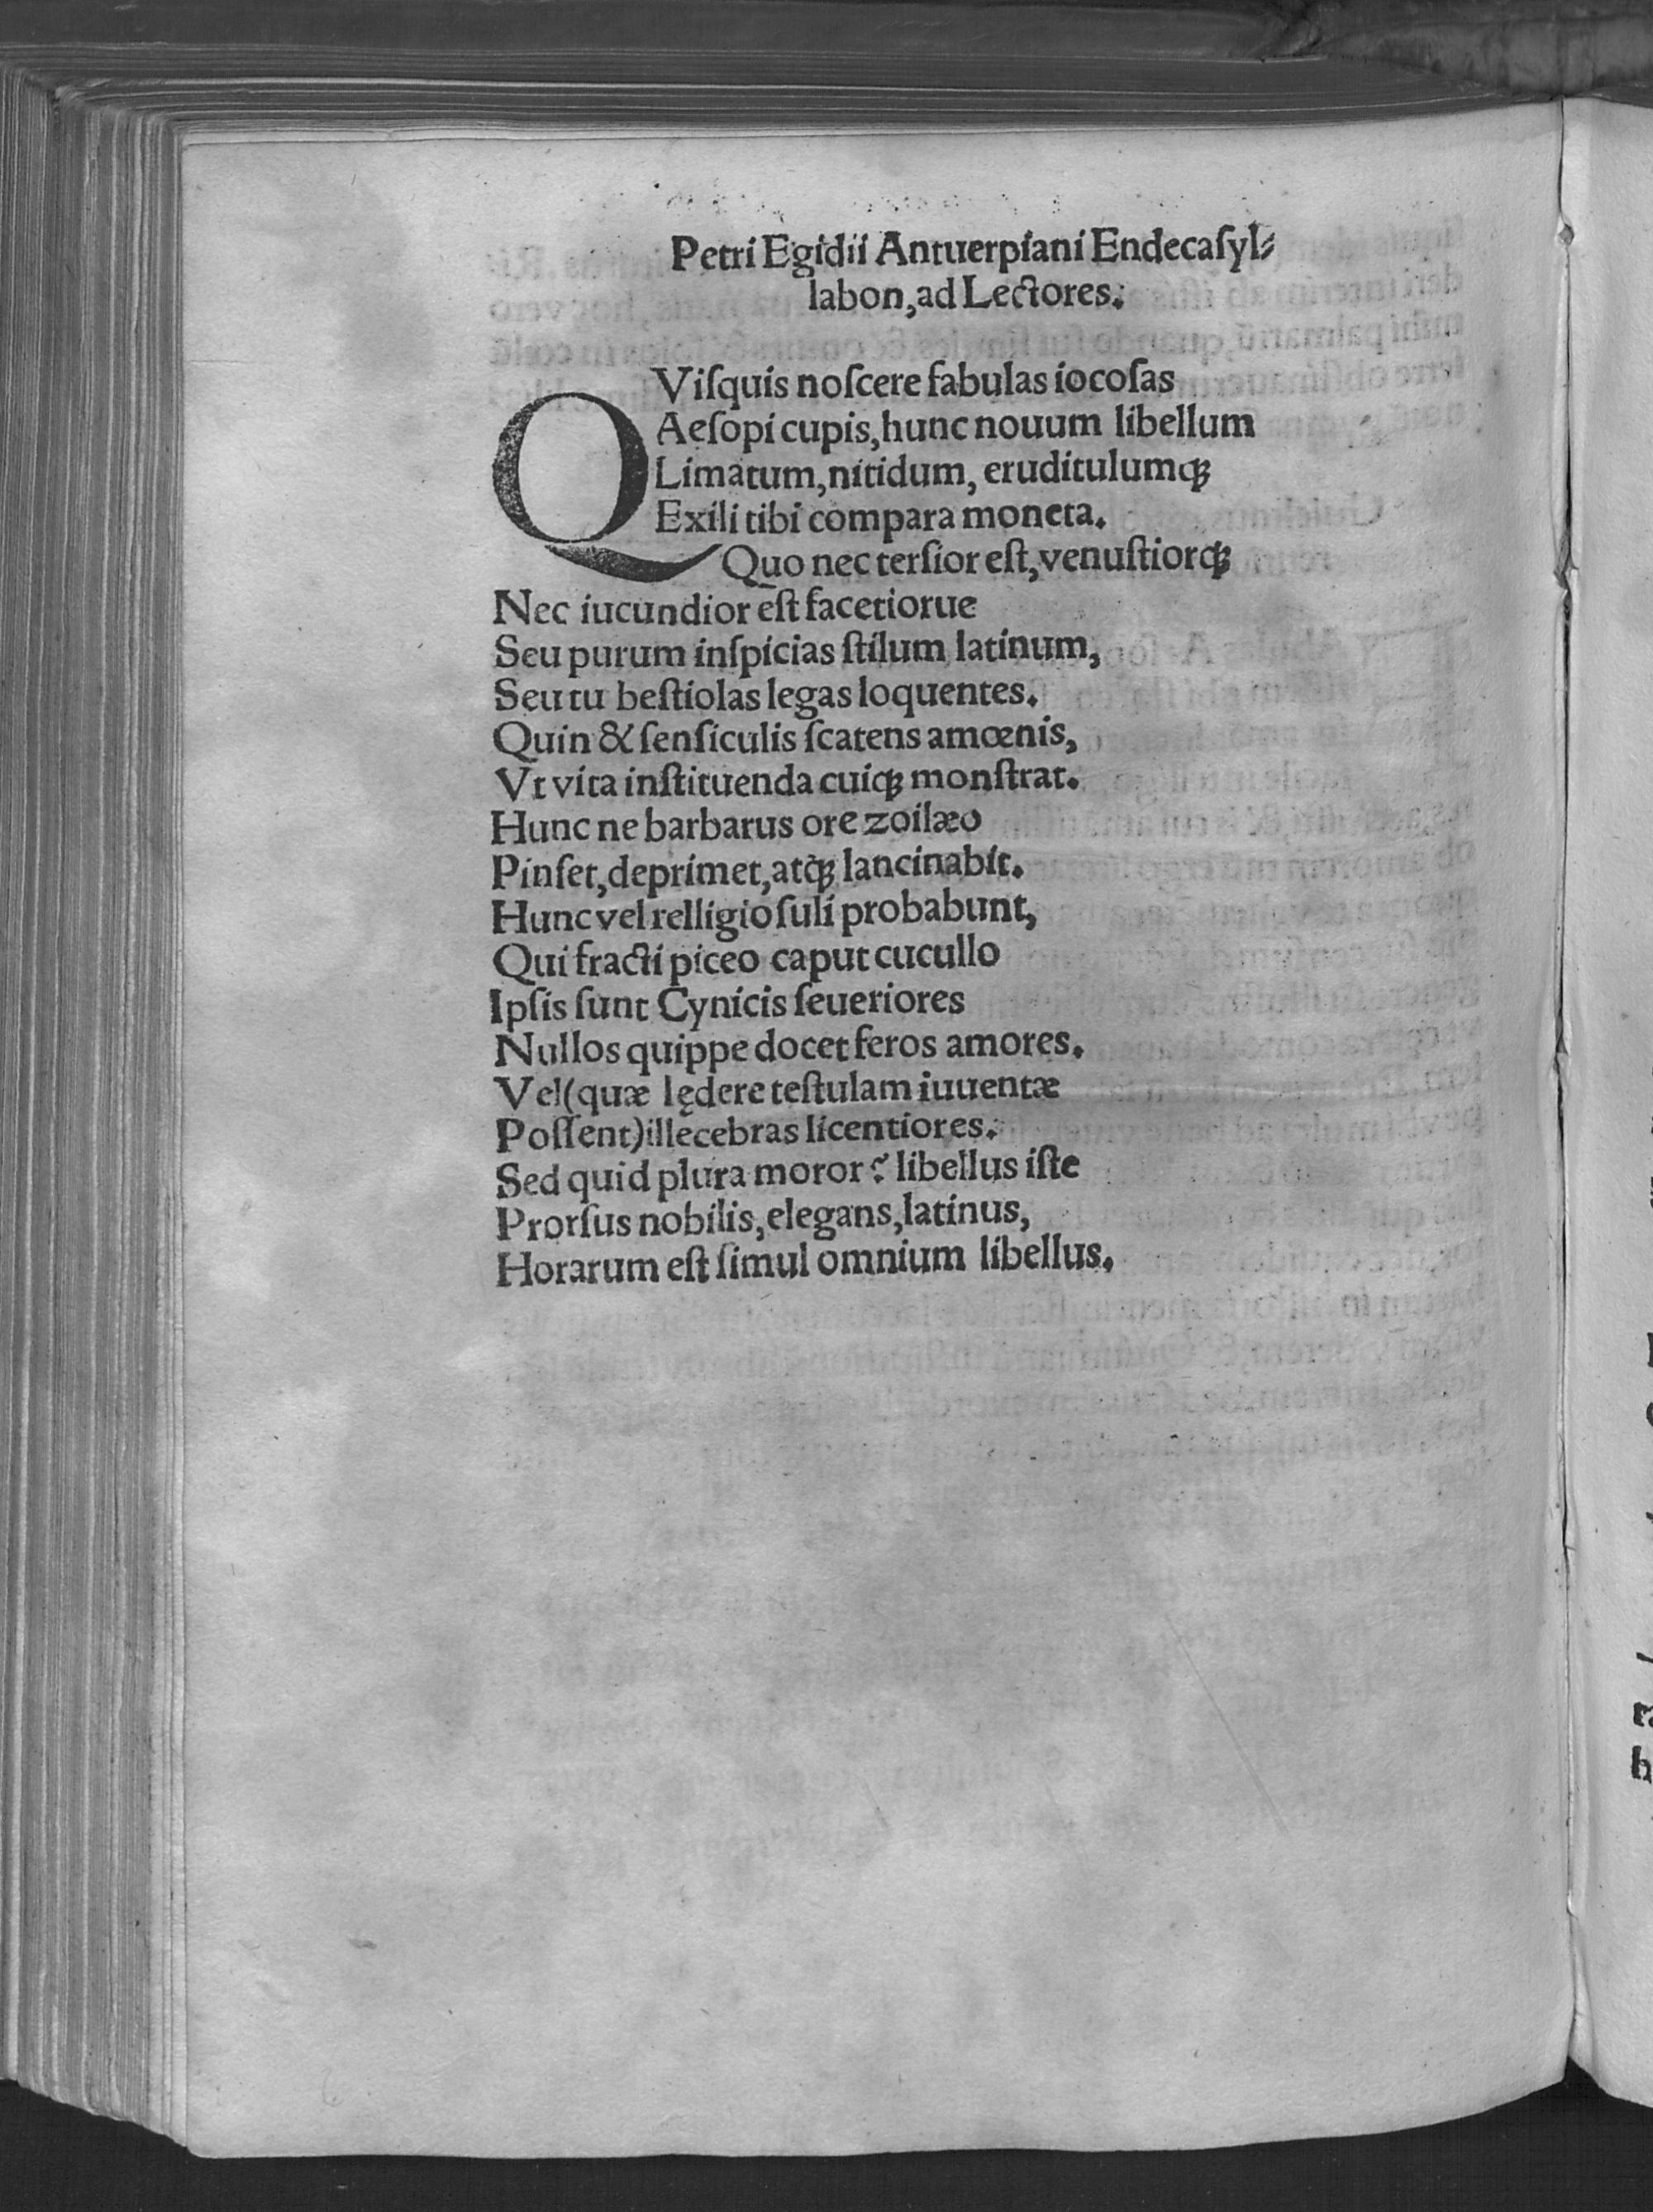 Petri Egidii Antuerpiani Endecaſyl⸗
labon, ad Lectores.
QViſquis noſcere fabulas iocoſas
Aeſopi cupis, hunc nouum libellum
Limatum, nitidum, eruditulumqꝫ
Exili tibi compara moneta.
Quo nec terſior eſt, venuſtiorqꝫ
Nec iucundior eſt facetiorue
Seu purum inſpicias ſtilum latinum,
Seu tu beſtiolas legas loquentes.
Quin & ſenſiculis ſcatens amœnis,
Vt vita inſtituenda cuiqꝫ monſtrat.
Hunc ne barbarus ore zoilæo
Pinſet, deprimet, atqꝫ lancinabit.
Hunc vel relligioſuli probabunt,
Qui fracti piceo caput cucullo
Ipſis ſunt Cynicis ſeueriores
Nullos quippe docet feros amores.
Vel (quæ lędere teſtulam iuuentæ
Poſſent) illecebras licentiores.
Sed quid plura moror? libellus iſte
Prorſus nobilis, elegans, latinus,
Horarum eſt ſimul omnium libellus.